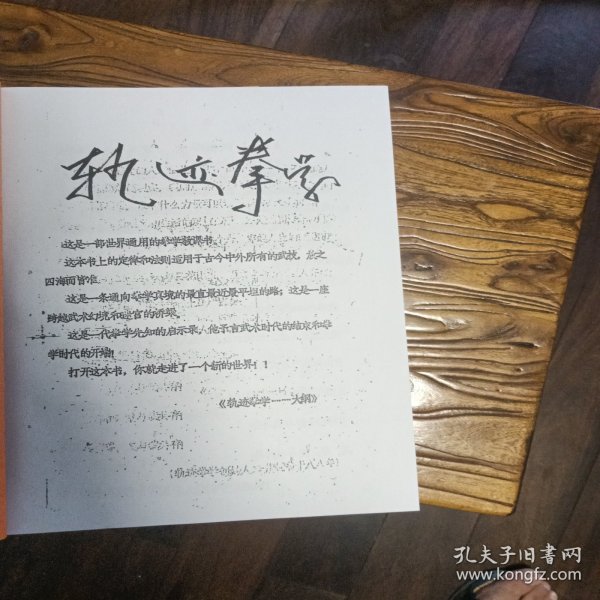 轨迹拳学
这是一部世界通用的拳学教课书。
这本书上的定律和法则适用于古今中外所有的武技,放之
四海而皆准
这是一条通向拳学真境的最直最近最平坦的路;这是一座
跨越武术幻境和迷宫的桥梁
这是一代拳学先知的启示录,他予言武术时代的结束和拳
学时代的开始!
打开这本书,你就走进了一个新的世界!!
《轨迹拳学……大纲》
孔夫子旧书网
www.kongfz.com